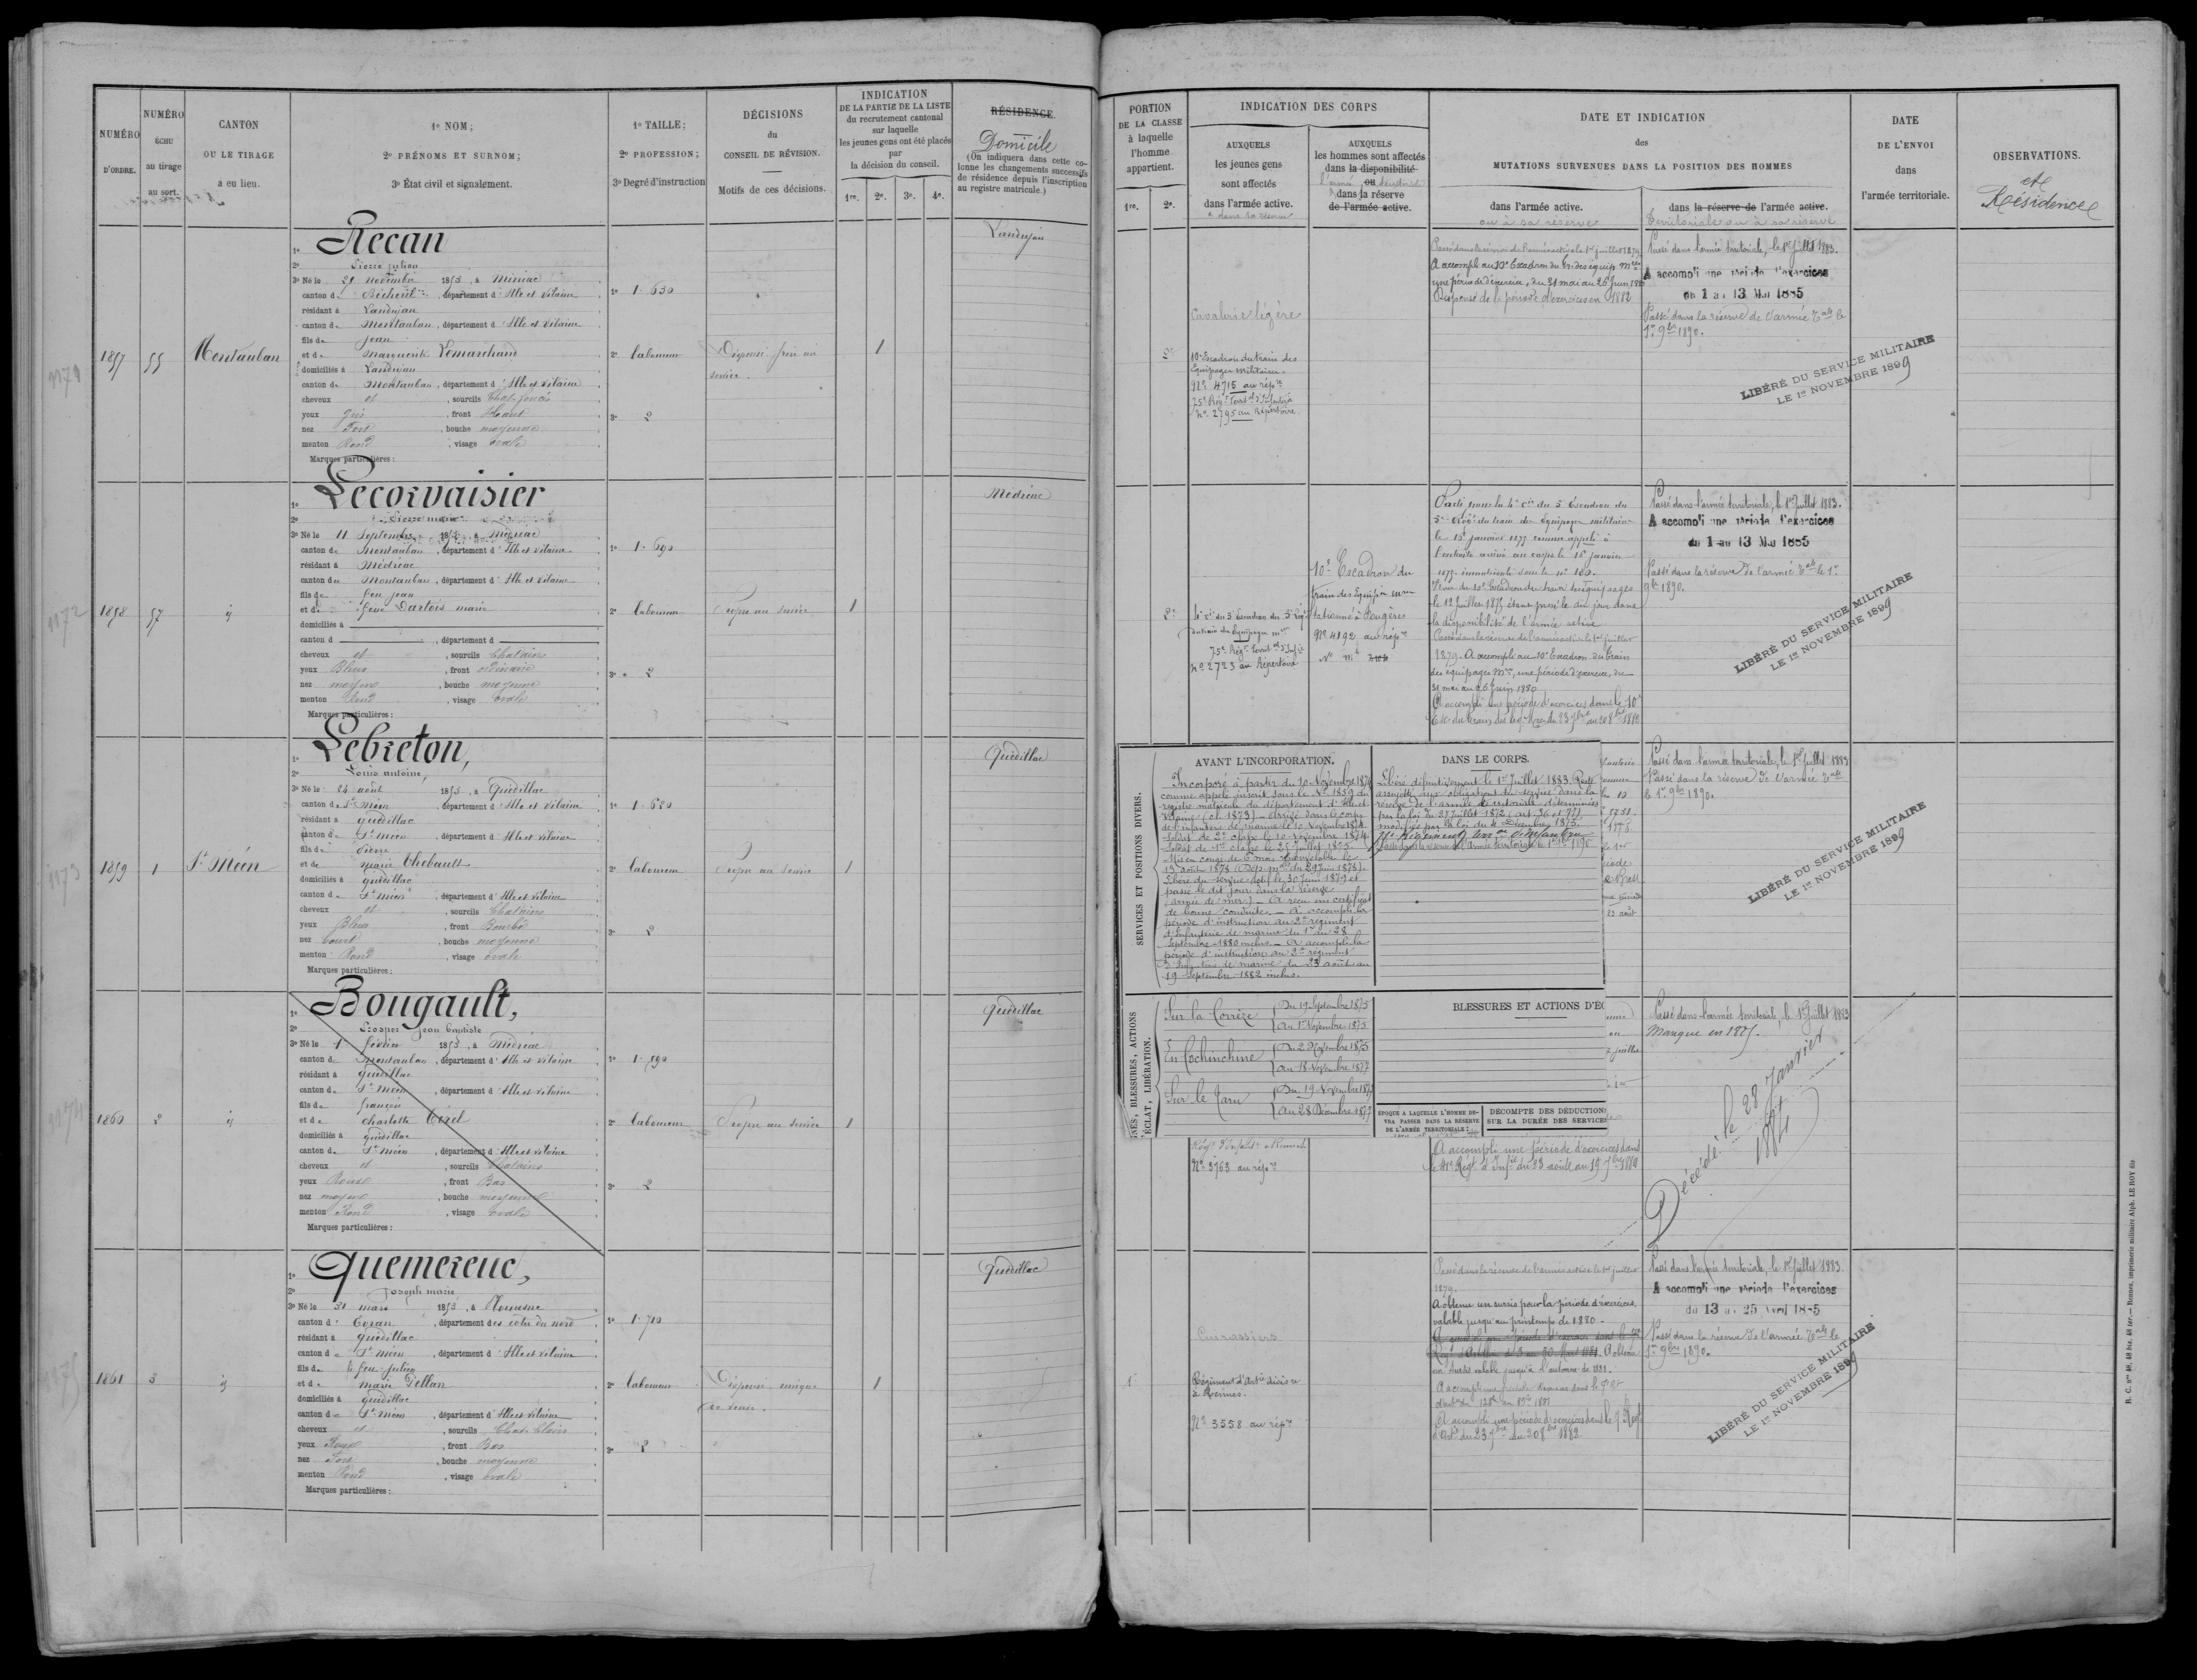 NUMÉRO
D'ORDRE.
NUMÉRO
ÉCHU
au tirage
au sort.
CANTON
OU LE TIRAGE
a eu lieu.
1º NOM;
2º PRÉNOMS ET SURNOM;
3º État civil et signalement.
1º TAILLE;
2º PROFESSION;
3º Degré d'instruction
DÉCISIONS
du
CONSEIL DE RÉVISION.
Motifs de ces décisions.
INDICATION
DE LA PARTIE DE LA LISTE
du recrutement cantonal
sur laquelle
les jeunes gens ont été placés
par
la décision du conseil.
1re. 2e. 3e. 4e.
RÉSIDENCE.
Domicile
(On indiquera dans cette co-
lonne les changements successifs
de résidence depuis l'inscription
au registre matricule.)
1171
1857
55
Montauban
1º Recan
2º Pierre Julien
3º Né le 29 novembre 1853, à Miniac
canton de Bécherel, département d'Ille et Vilaine
résidant à Landujan
canton de Montauban, département d'Ille et Vilaine
fils de Jean
et de Marguerite Lemarchand
domiciliés à Landujan
canton de Montauban, département d'Ille et Vilaine
cheveux et, sourcils Chat. foncés
yeux Gris, front Haut
nez Fort, bouche moyenne
menton Rond, visage ovale
Marques particulières:
1º 1.630
2º laboureur
3º 2
Dispensé frère au
service.
1
Landujan
1172
1858
57
id
1º Lecorvaisier
2º Pierre marie
3º Né le 11 Septembre 1853, à Médréac
canton de Montauban, département d'Ille et Vilaine
résidant à Médréac
canton de Montauban, département d'Ille et Vilaine
fils de feu Jean
et de feue Dartois marie
domiciliés à
canton d, département d
cheveux et, sourcils Chatain
yeux Bleus, front ordinaire
nez moyen, bouche moyenne
menton Rond, visage ovale
Marques particulières:
1º 1.690
2º laboureur
3º 2
Propre au service
1
Médréac
1173
1859
1
St Méen
1º Lebreton,
2º Louis antoine,
3º Né le 24 août 1853, à Quédillac
canton de St Méen, département d'Ille et Vilaine
résidant à Quédillac
canton de St Méen, département d'Ille et Vilaine
fils de Pierre
et de Marie Thébault
domiciliés à Quédillac
canton de St Méen, département d'Ille et Vilaine
cheveux et, sourcils Chatains
yeux Bleus, front Bombé
nez Court, bouche moyenne
menton Rond, visage ovale
Marques particulières:
1º 1.680
2º laboureur
3º 2
Propre au service
1
Quédillac
1174
1860
2
id
1º Bougault,
2º Prosper Jean Baptiste
3º Né le 1er février 1853, à Médréac
canton de Montauban, département d'Ille et Vilaine
résidant à Quédillac
canton de St Méen, département d'Ille et Vilaine
fils de françois
et de charlotte Tirel
domiciliés à Quédillac
canton de St Méen, département d'Ille et Vilaine
cheveux et, sourcils Chatains
yeux Roux, front Bas
nez moyen, bouche moyenne
menton Rond, visage ovale
Marques particulières:
1º 1.590
2º laboureur
3º 2
Propre au service
1
Quédillac
1175
1861
3
id
1º Quemereuc,
2º Joseph marie
3º Né le 31 mars 1853, à Plumaugat
canton d, département des côtes du nord
résidant à Quédillac
canton de St Méen, département d'Ille et Vilaine
fils de feu Julien
et de marie Pellan
domiciliés à Quédillac
canton de St Méen, département d'Ille et Vilaine
cheveux et, sourcils Chat. Clairs
yeux Roux, front Bas
nez Fort, bouche moyenne
menton Rond, visage ovale
Marques particulières:
1º 1.710
2º laboureur
3º 2
Dispensé unique
de veuve.
1
Quédillac
PORTION
DE LA CLASSE
à laquelle
l'homme
appartient.
1re. 2e.
INDICATION DES CORPS
AUXQUELS
les jeunes gens
sont affectés
dans l'armée active.
AUXQUELS
les hommes sont affectés
dans la disponibilité
ou
dans la réserve
de l'armée active.
DATE ET INDICATION
des
MUTATIONS SURVENUES DANS LA POSITION DES HOMMES
dans l'armée active.
ou à sa réserve
dans la réserve de l'armée active.
Territoriale ou à sa réserve
DATE
DE L'ENVOI
dans
l'armée territoriale.
OBSERVATIONS.
et
Résidence
2e
Cavalerie légère
10e Escadron du train des
Equipages militaires.
No 4715 au répre
75e Régt Territal d'Infanterie
No 2795 au Répertoire.
Passé dans la réserve de l'armée active le 1er juillet 1879.
A accompli au 10e Escadron du tr. des équip. mres
une période d'exercices, du 31 mai au 26 juin 1880
Dispensé de la période d'exercices en 1882
Passé dans l'armée territoriale, le 1er Juillet 1883.
A accompli une période d'exercices
du 1 au 13 Mai 1885
Passé dans la réserve de l'armée Tale le
1er 9bre 1890.
LIBÉRÉ DU SERVICE MILITAIRE
LE 1er NOVEMBRE 1899
2e
4e Cie du 5e Escadron du 5e Régt
du train des Equipages mres
75e Régt territal d'Infie
No 2723 au Répertoire
10e Escadron du
train des Equipes mres
stationné à Fougères
No 4192 au répre
Parti pour la 4e Cie du 5e Escadron du
5e Régt du train des Equipages militaires
le 15 janvier 1875 comme appelé à
l'activité arrivé au corps le 18 janvier
1875 immatriculé sous le no 180.
Venu du 10e Escadron du train des équipages
le 12 Juillet 1875 étant passé le dit jour dans
la disponibilité de l'armée active
Passé dans la réserve de l'armée active le 1er juillet
1879. A accompli au 10e Escadron du train
des équipages Mres, une période d'exercices, du
31 mai au 26 juin 1880
A accompli une période d'exercices dans le 10e
Esc. du train des Eq. Mres du 23 7bre au 20 8bre 1882
Passé dans l'armée territoriale, le 1er Juillet 1883.
A accompli une période d'exercices
du 1 au 13 Mai 1885
Passé dans la réserve de l'armée Tale le 1er
9bre 1890.
LIBÉRÉ DU SERVICE MILITAIRE
LE 1er NOVEMBRE 1899
SERVICES ET POSITIONS DIVERS.
AVANT L'INCORPORATION.
Incorporé à partir du 10 Novembre 1874
comme appelé inscrit sous le No 1859 du
registre matricule du département d'Ille et
Vilaine (cl. 1873) – Arrivé dans le corps
de l'infanterie de marine le 10 Novembre 1874.
Soldat de 2e classe le 10 novembre 1874.
Soldat de 1re classe le 25 Juillet 1875.
Mis en congé de 6 mois renouvelable le
13 août 1878 (Dép. mlle du 29 Juin 1878).
Libéré du service actif le 30 Juin 1879 et
passé le dit jour dans la réserve
(armée de mer) – A reçu un certificat
de bonne conduite. – A accompli la
période d'instruction au 2e régiment
d'Infanterie de marine du 1er au 28
Septembre 1880 inclus. – A accompli la
période d'instruction au 2e régiment
d'Infanterie de marine du 23 août au
19 Septembre 1882 inclus.
DANS LE CORPS.
Libéré définitivement le 1er Juillet 1883. Reste
assujetti aux obligations du service dans la
réserve de l'armée territoriale déterminées
par la loi du 27 Juillet 1872 (art. 36
modifiée par la loi du 4 Décembre 1875.
75e Régiment terral d'Infanterie
Passé dans la réserve de l'Armée territoriale le 1er 9bre 1890
Passé dans l'armée territoriale, le 1er Juillet 1883
Passé dans la réserve de l'armée Tale
le 1er 9bre 1890.
LIBÉRÉ DU SERVICE MILITAIRE
LE 1er NOVEMBRE 1899
BLESSURES, ACTIONS
D'ÉCLAT, LIBÉRATION.
Sur la Corrèze
Du 19 Septembre 1875
Au 1er Novembre 1875
En Cochinchine
Du 2 Novembre 1875
Au 18 Novembre 1877
Sur le Tarn
Du 19 Novembre 1877
Au 28 Décembre 1877
BLESSURES ET ACTIONS D'ÉC
ÉPOQUE A LAQUELLE L'HOMME DE-
VRA PASSER DANS LA RÉSERVE
DE L'ARMÉE TERRITORIALE:
DÉCOMPTE DES DÉDUCTIONS
SUR LA DURÉE DES SERVICES
No 3763 au répre
A accompli une période d'exercices dans
le 41e Régt d'Infie du 23 août au 19 7bre 1880
Passé dans l'armée territoriale, le 1er Juillet 1883
Manque en 1885.
Décédé le 28 Janvier
1884
1re
Cuirassiers
Régiment d'Artie divisre
à Rennes.
No 3558 au répre
Passé dans la réserve de l'armée active le 1er juillet
1879.
A obtenu un sursis pour la période d'exercices
valable jusqu'au printemps de 1880 –
A obtenu
un sursis valable jusqu'à l'automne de 1881.
A accompli une période d'exercices dans le 7e Régt
A accompli une période d'exercices dans le 7e Régt
d'Artie du 23 7bre au 20 8bre 1882
Passé dans l'armée territoriale, le 1er Juillet 1883.
A accompli une période d'exercices
du 13 au 25 Avril 1885
Passé dans la réserve de l'armée Tale le
1er 9bre 1890.
LIBÉRÉ DU SERVICE MILITAIRE
LE 1er NOVEMBRE 1899
R. C. nos 48, 48 bis, 48 ter. — Rennes, imprimerie militaire Alph. LE ROY fils